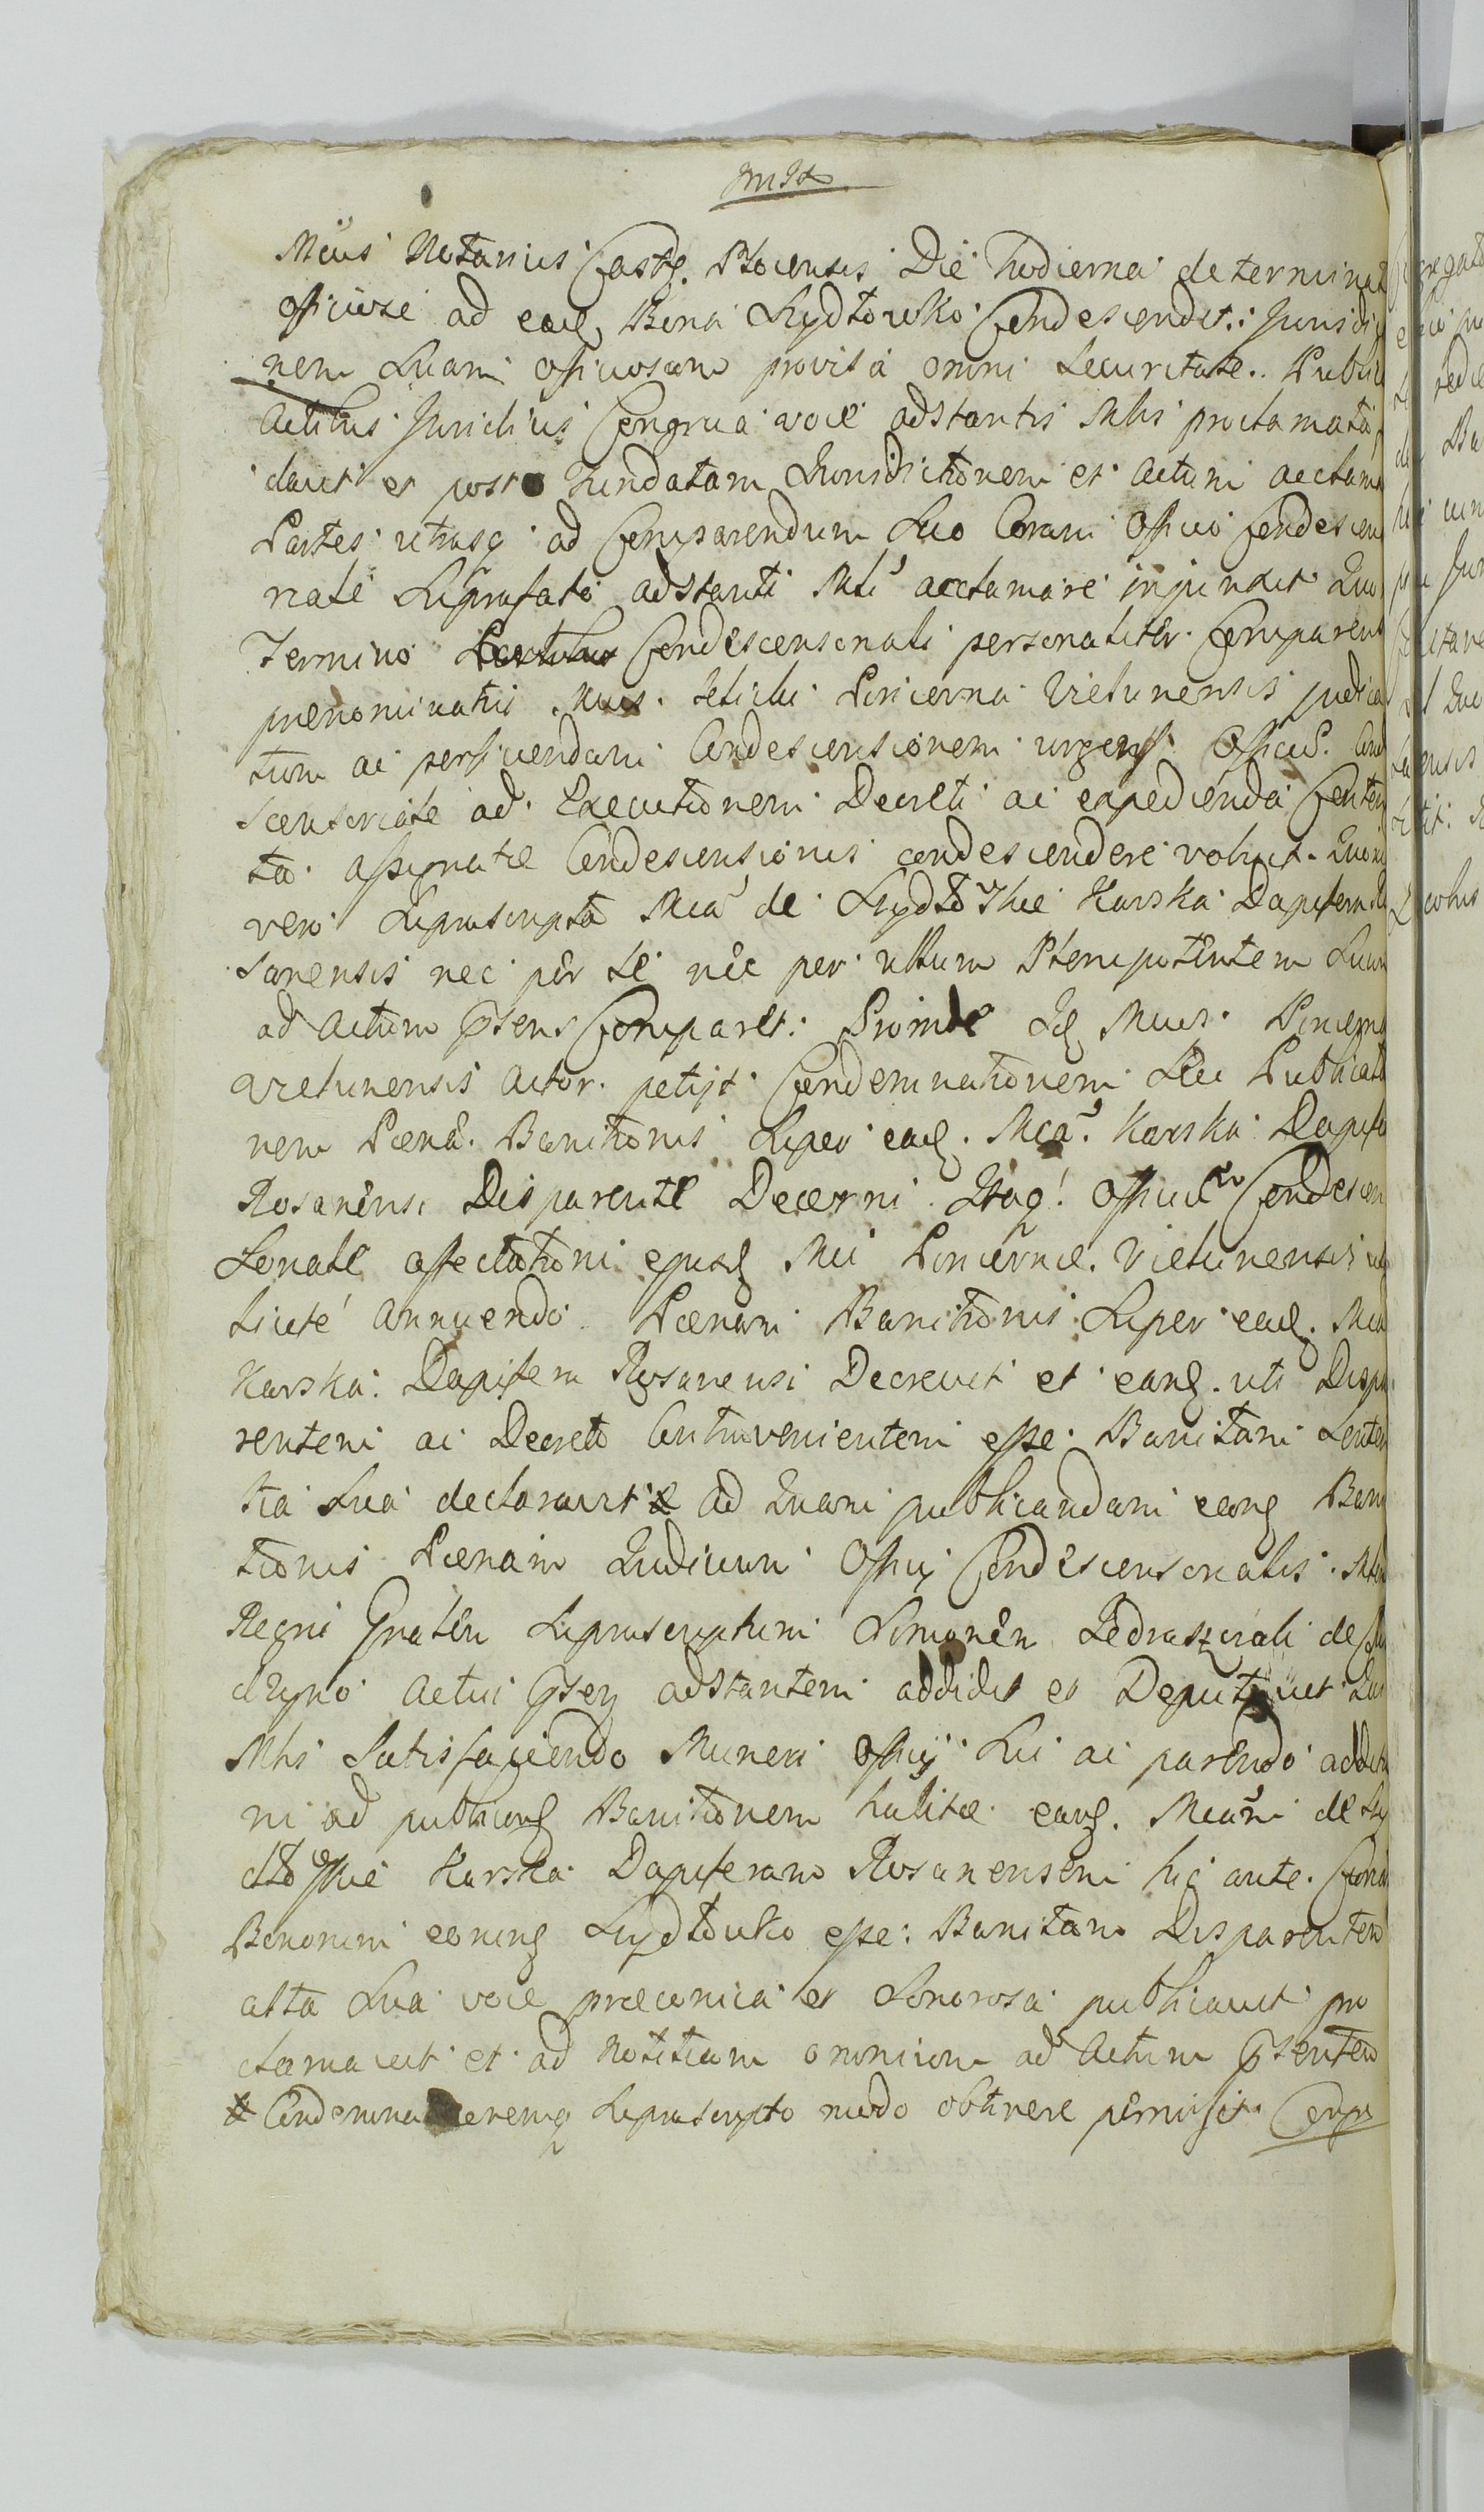 Mcus Notarius Castr. Plocensis Die hodierna determinat
officiose ad eadq Bona Szydłowko Condescendit: Jurisdi
nem Suam officiosam provisa omni Securitate. Public
Actibus Juridicis Congrua voce adstantis Mlis proclamata
davit et post fundatam Jurisdictionem et actum acclama
Partes utrasq ad Comparendum Suo Coram Officio Condescen
nale Suprafato adstanti Mli acclamare injunxit Quo
Termino Condescensonali personaliter Comparent
prenominatus Mcus. Pincerna Vielunensis judica
tum ac perficiendam Condescensionem urgens Officiu. Cond
scensoriale ad Executionem Decreti ac expedienda Conten
ta assignatæ Condescensionis condescendere voluit. Quoni
vero Suprascripta Mca de Karska Dapifera Ro
sanensis nec per se nec per ullum Plenipotentem Suum
ad Actum Psens Comparet: Proinde Idq Mcus Pincerna
Vielunensis Actor petijt Condemnationem Seu Publicatio
nem Pænæ Banitionis Super eadq. Mca Karska Dapife
Rosanensi Disparente Decerni. Itaq Officiu Condescen
Sonale affectationi ejusdq Mci Pincernæ Vielunensis
licite Annuendo Pænam Banitionis Super eadq. Mca
Karska Dapifera Rosanensi Decrevit et eandq. uti Dispa
rentem ac Decreto Contravenientem esse Banitam Senten
tia Sua declaravit ⨯ ad Quam publicandam eandq Bani
tionis Pænam Judicium Officij Condescensonalis Mlem
Regni Gnalem Suprascriptum Simonem de
Actui Psenq adstantem addidit et Deputavit Qui
Mlis Satisfaciendo Muneri Officij Sui ac parendo addi
ni ad publicandq Banitionem habitæ eandq. Mcam de Szy
Karska Dapiferam Rosanensem hic ante
Bonorum eorundq Szydłowko esse Banitam Disparentem
alta Sua voce præconica et Sonorosa publicavit pro
clamavit et ad Notitiam omnium ad Actum Psentem
⨯ Suprascripto modo obtinere permisit